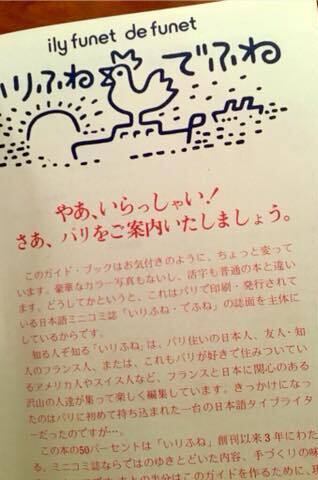 ily funet de funet
いりふね でふね
やあ、いらっしゃい！
さあ、パリをご案内いたしましょう。
このガイド・ブックはお気付きのように、ちょっと変って
います。豪華なカラー写真もないし、活字も普通の本と違い
ます。どうしてかというと、これはパリで印刷・発行されて
いる日本語ミニコミ誌「いりふね・でふね」の誌面を主体に
しているからです。
知る人ぞ知る「いりふね」は、パリ住いの日本人、友人・知
人のフランス人、または、これもパリが好きで住みついてい
るアメリカ人やスイス人など、フランスと日本に関心のある
沢山の人達が集って楽しく編集しています。きっかけになっ
たのはパリに初めて持ち込まれた一台の日本語タイプライタ
ーだったのですが…。
この本の50パーセントは「いりふね」創刊以来3年にわた
る、ミニコミ誌ならではのゆきとどいた内容、手づくりの味
半分はこのガイドを作るために、現